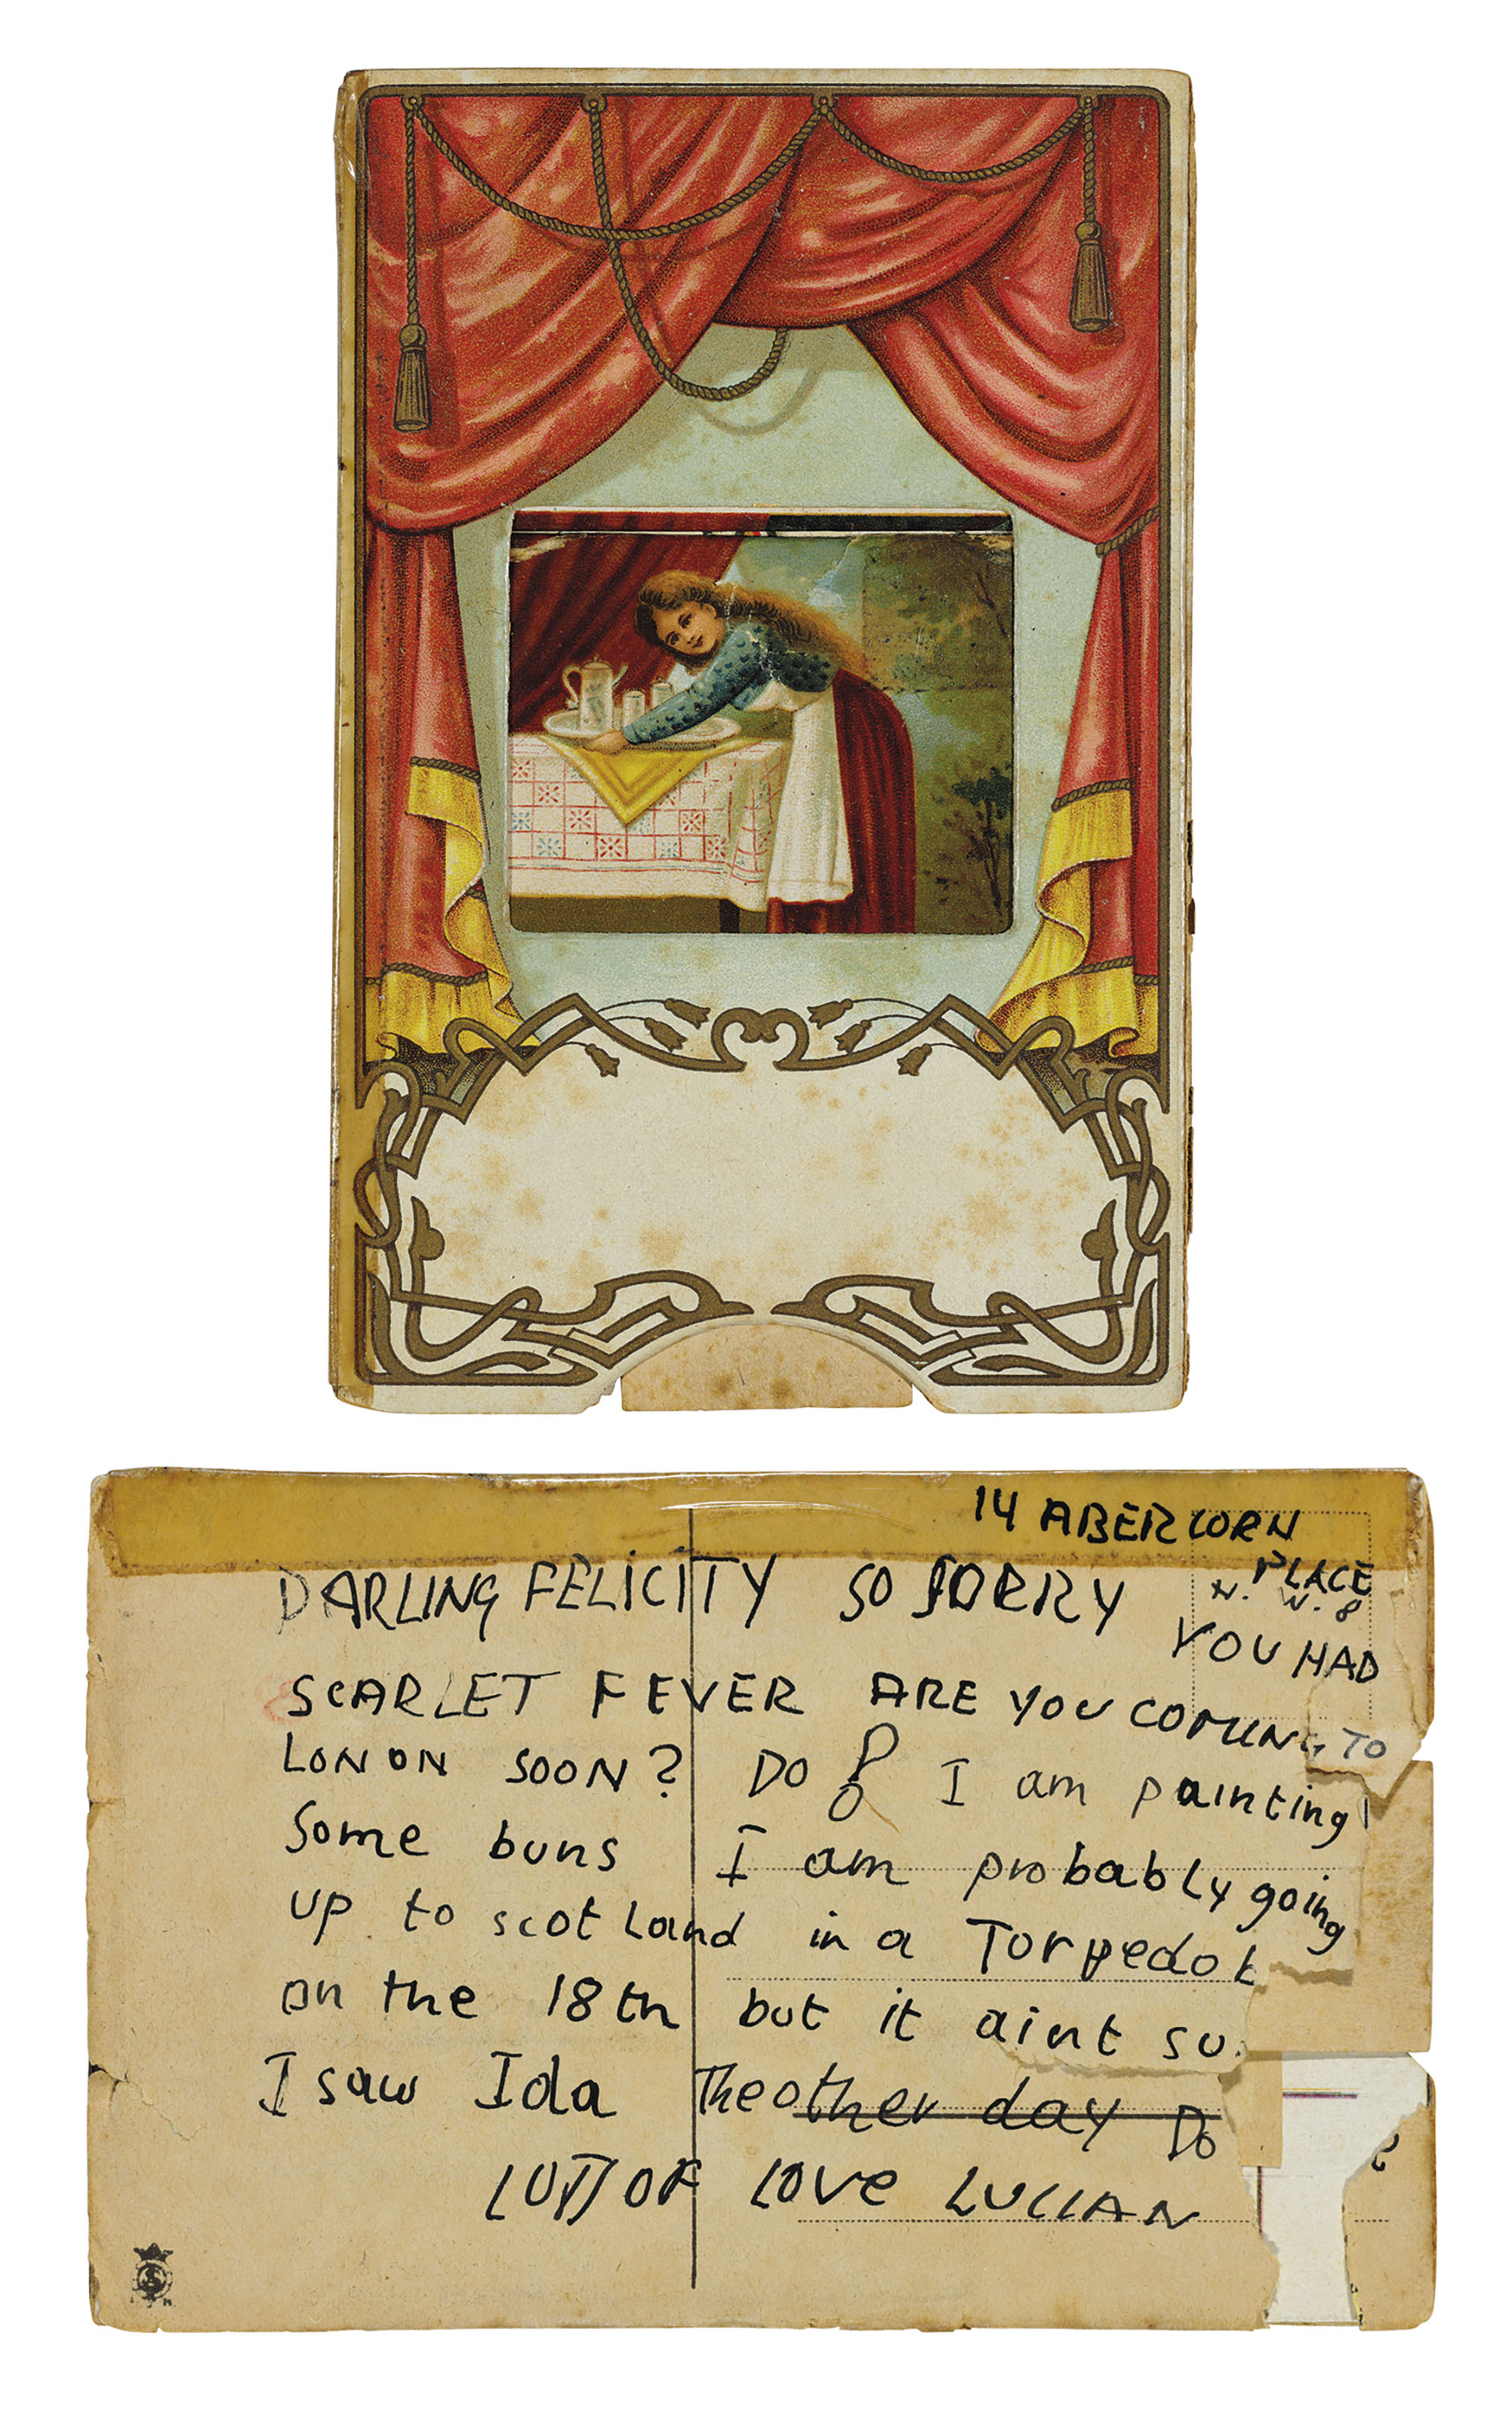 14 ABERCORN
PLACE
N. W. 8
DARLING FELICITY SO SORRY
YOU HAD
SCARLET FEVER ARE YOU COMING TO
LONON SOON? DO ! I am painting
Some buns I am probably going
up to scotland in a Torpedo
on the 18th but it aint
I saw Ida The other day Do
LOTS OF LOVE LUCIAN